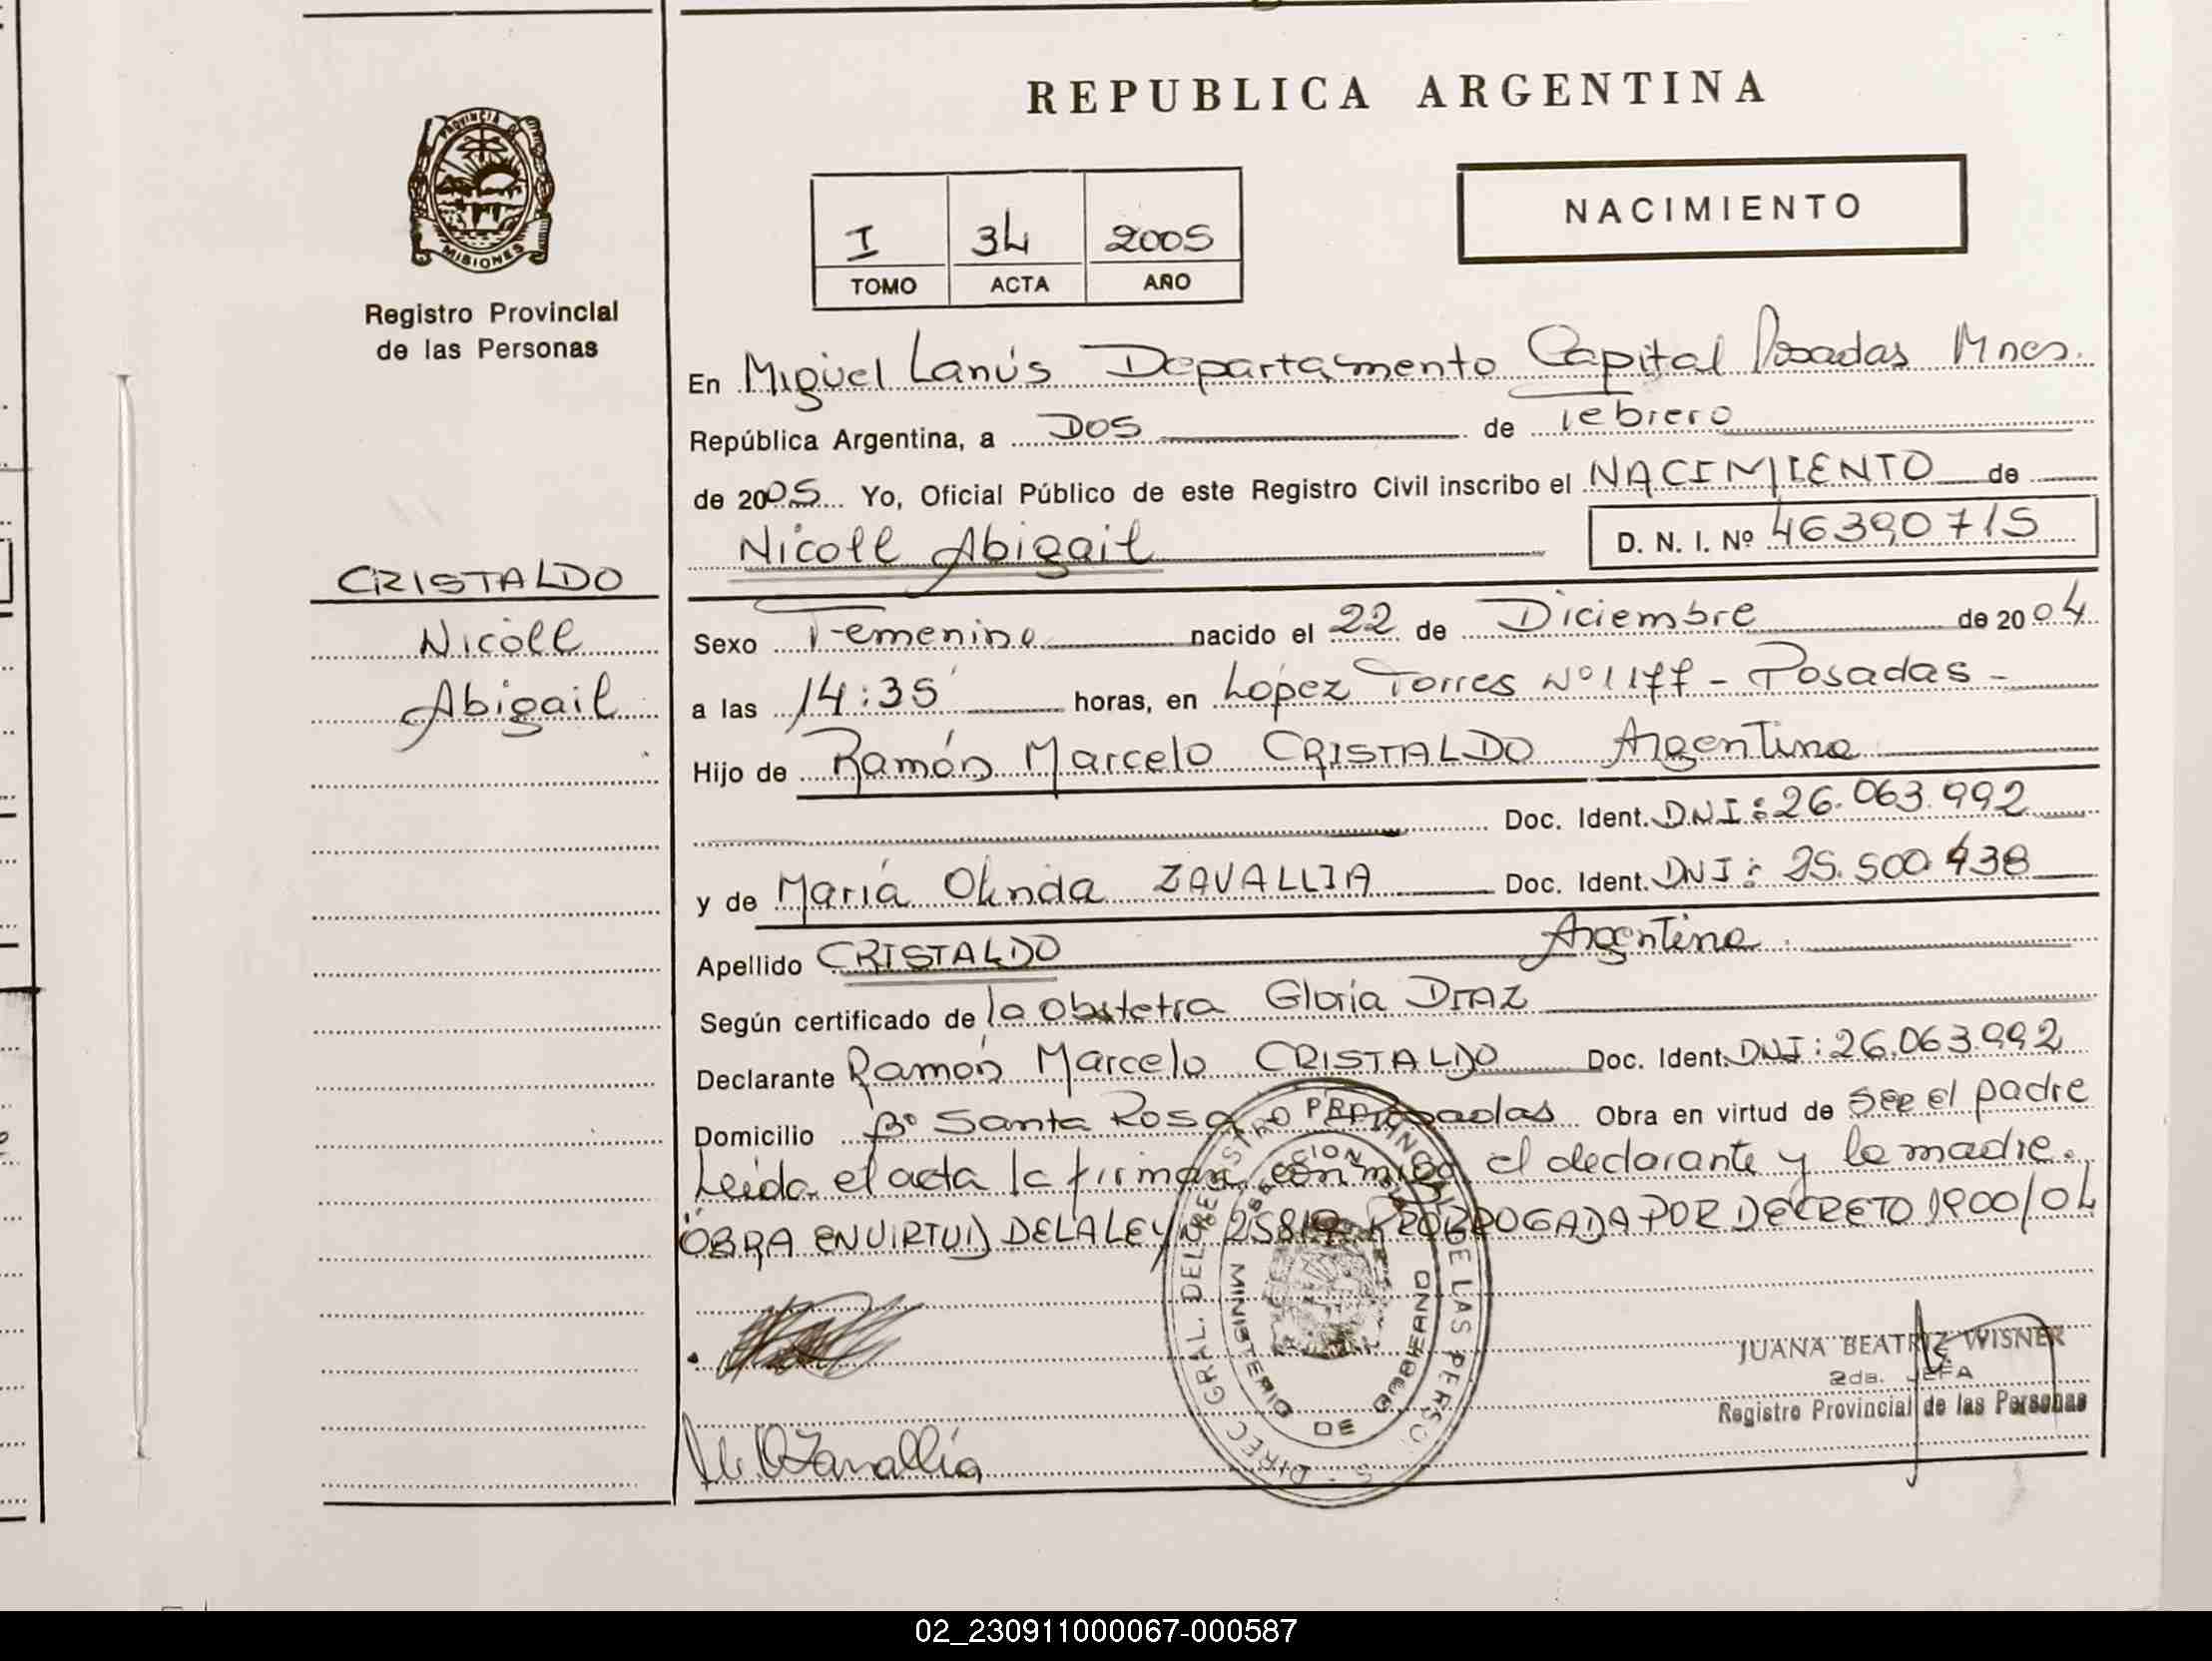 REPUBLICA ARGENTINA
PROVINCIA DE
MISIONES
Registro Provincial
de las Personas
I 34 2005
TOMO ACTA AÑO
NACIMIENTO
En Miguel Lanús Departamento Capital Posadas Mnes.
República Argentina, a Dos de Febrero
de 2005 Yo, Oficial Público de este Registro Civil inscribo el NACIMIENTO de
Nicoll Abigail D. N. I. Nº 46390715
CRISTALDO
Nicoll
Abigail
Sexo Femenino nacido el 22 de Diciembre de 2004
a las 14:35 horas, en López Torres Nº 1177 - Posadas -
Hijo de Ramón Marcelo CRISTALDO Argentino
Doc. Ident. DNI: 26.063.992
y de María Olinda ZAVALLIA Doc. Ident. DNI: 25.500.438
Apellido CRISTALDO Argentina
Según certificado de la Obstetra Gloria DIAZ
Declarante Ramón Marcelo CRISTALDO Doc. Ident. DNI: 26.063.992
Domicilio Bº Santa Rosa Posadas Obra en virtud de ser el padre
Leida el acta la firman conmigo el declarante y la madre.
OBRA EN VIRTUD DE LA LEY Nº 25819 PRORROGADA POR DECRETO 1900/04
DIREC GRAL. DEL REGISTRO PROVINCIAL DE LAS PERSONAS
MINISTERIO DE GOBIERNO
JUANA BEATRIZ WISNER
2da. JEFA
Registro Provincial de las Personas
Zavallia
02_230911000067-000587